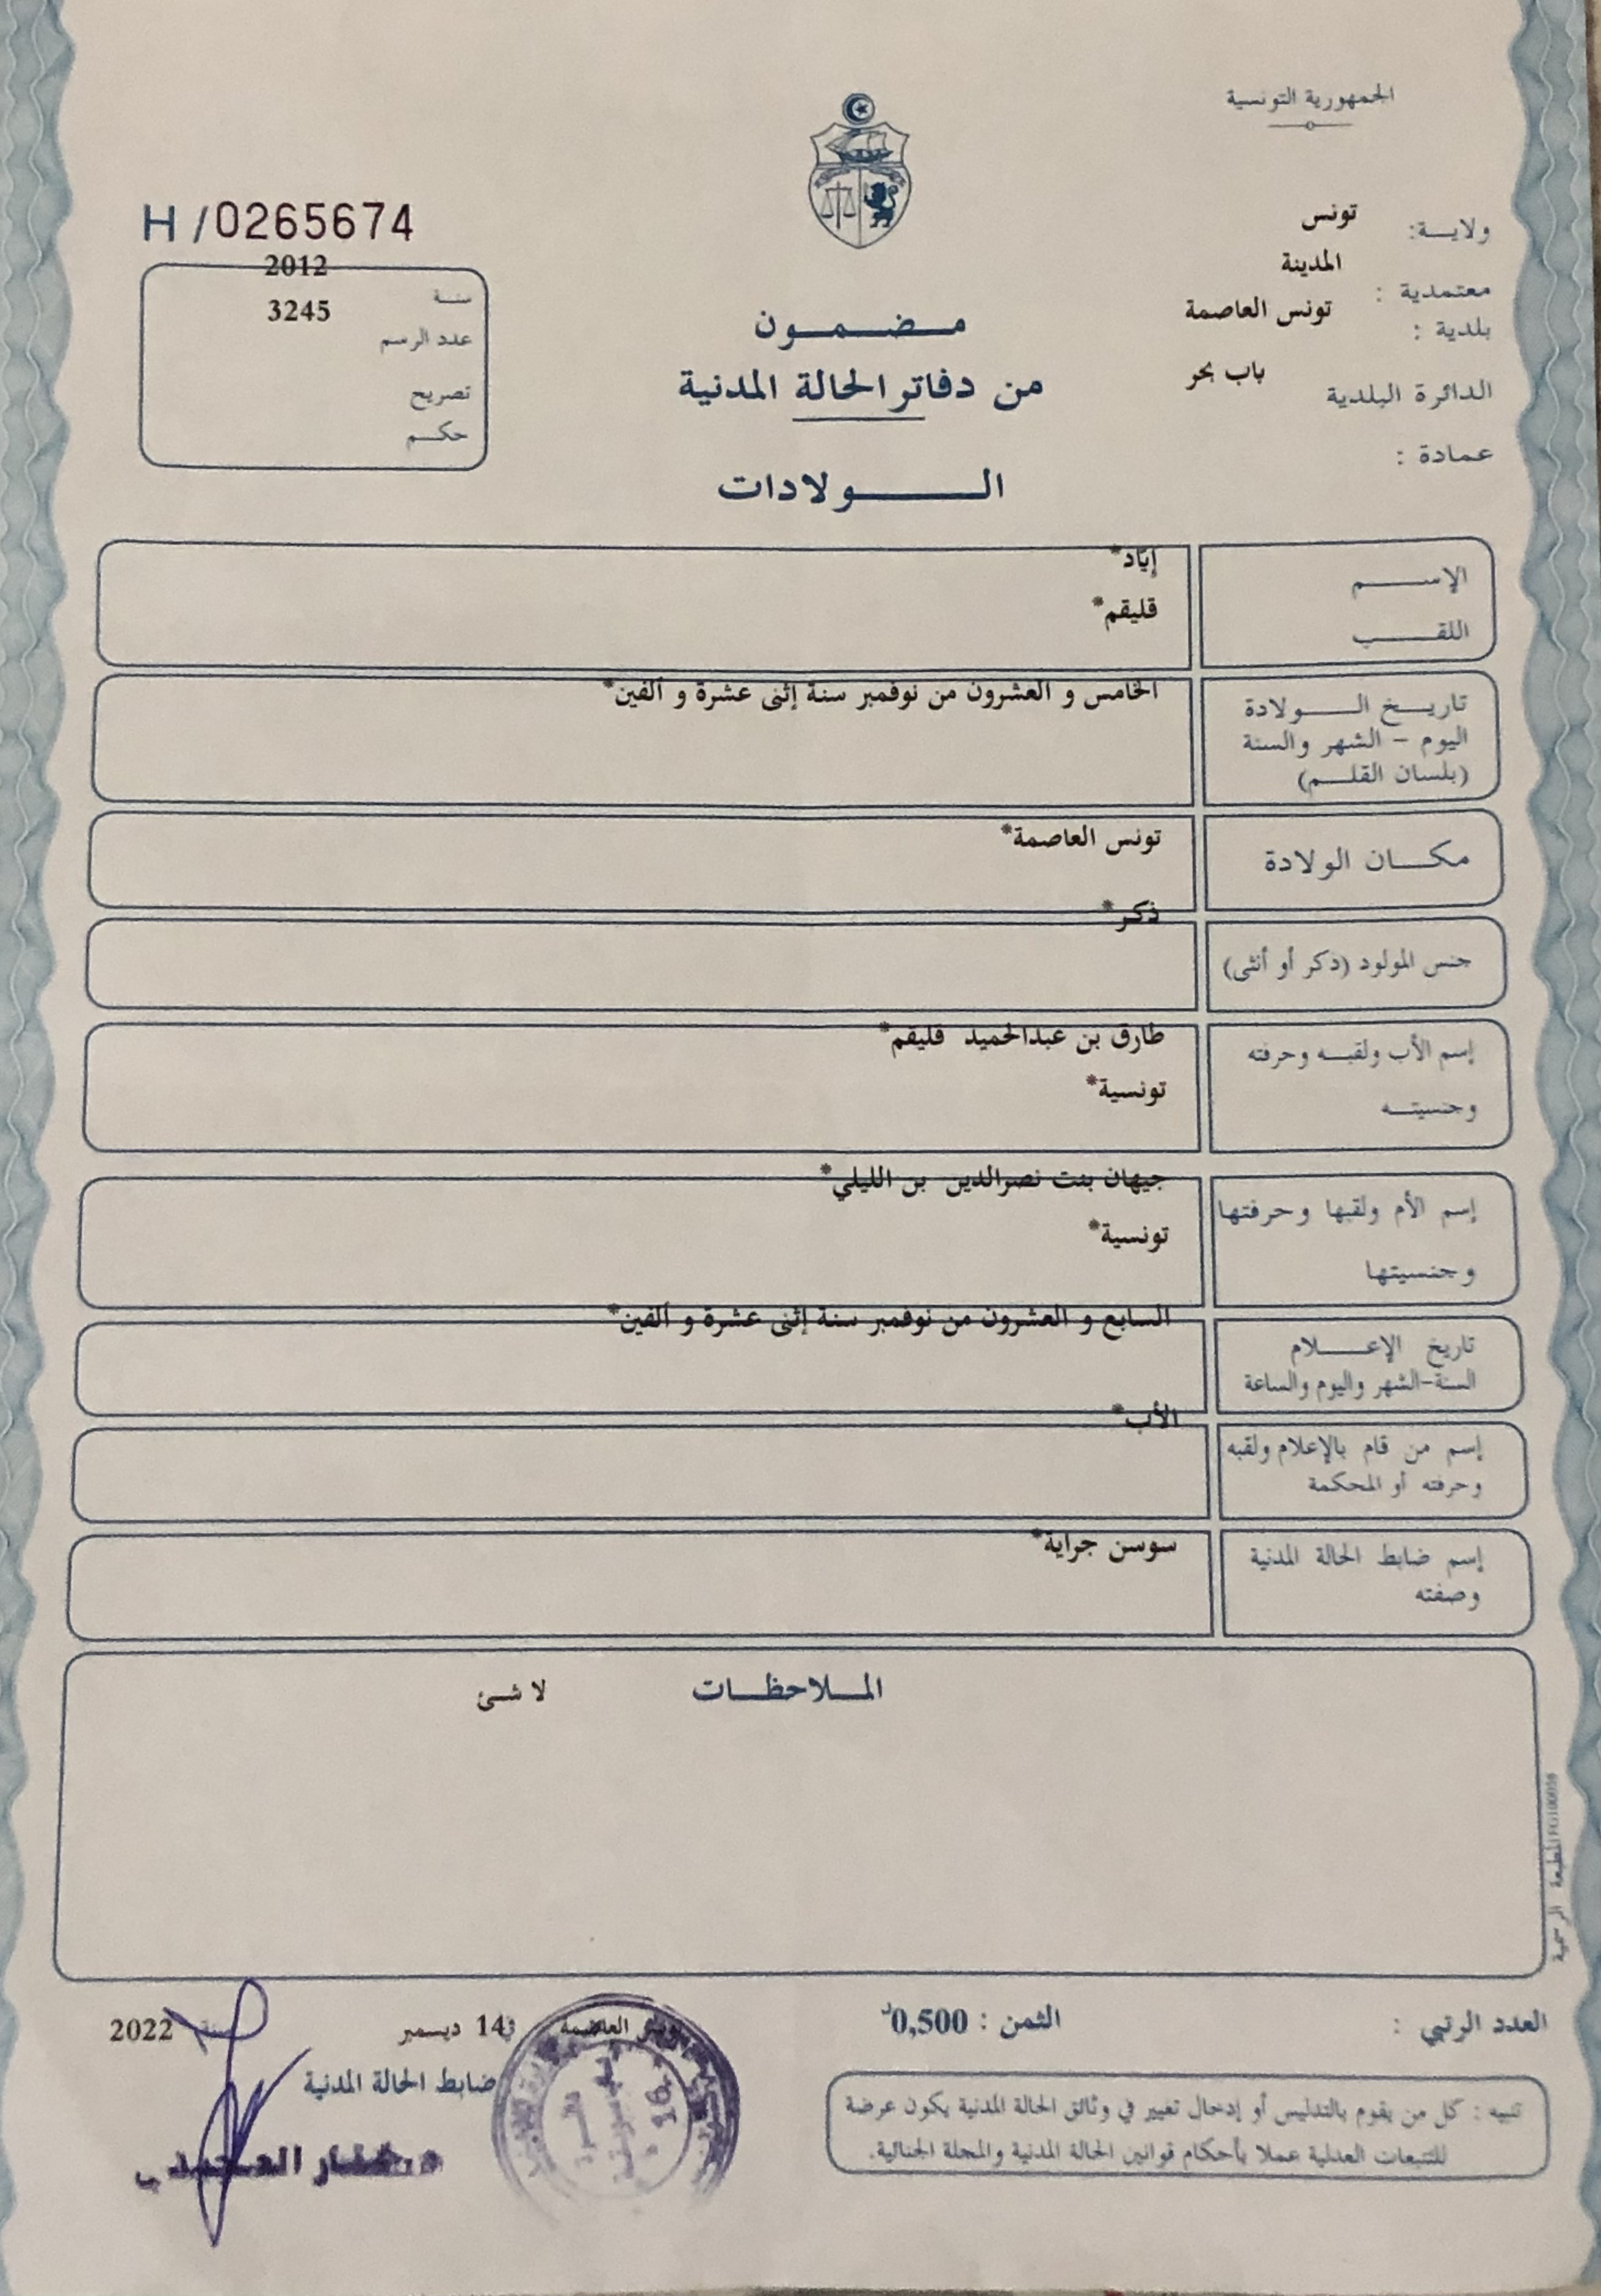 الجمهورية التونسية
ولاية: تونس
معتمدية : المدينة
بلدية : تونس العاصمة
الدائرة البلدية باب بحر
عمادة :
H /0265674
سنة 2012
عدد الرسم 3245
تصريح
حكم
مضمون
من دفاتر الحالة المدنية
الولادات
الإسم إيّاد*
اللقب قليقم*
تاريخ الولادة الخامس و العشرون من نوفمبر سنة إثنى عشرة و ألفين*
اليوم - الشهر والسنة
(بلسان القلم)
مكان الولادة تونس العاصمة*
جنس المولود (ذكر أو أنثى) ذكر*
إسم الأب ولقبه وحرفته طارق بن عبدالحميد قليقم*
وجنسيته تونسية*
إسم الأم ولقبها وحرفتها جيهان بنت نصرالدين بن الليلي*
وجنسيتها تونسية*
تاريخ الإعلام السابع و العشرون من نوفمبر سنة إثنى عشرة و ألفين*
السنة-الشهر واليوم والساعة
إسم من قام بالإعلام ولقبه الأب*
وحرفته أو المحكمة
إسم ضابط الحالة المدنية سوسن جراية*
وصفته
الملاحظات لا شئ
المطبعة الرسمية
العدد الرتبي :
الثمن : 0,500د
تونس العاصمة في 14 ديسمبر سنة 2022
ضابط الحالة المدنية
تنبيه : كل من يقوم بالتدليس أو إدخال تغيير في وثائق الحالة المدنية يكون عرضة
للتتبعات العدلية عملا بأحكام قوانين الحالة المدنية والمجلة الجنائية.
16